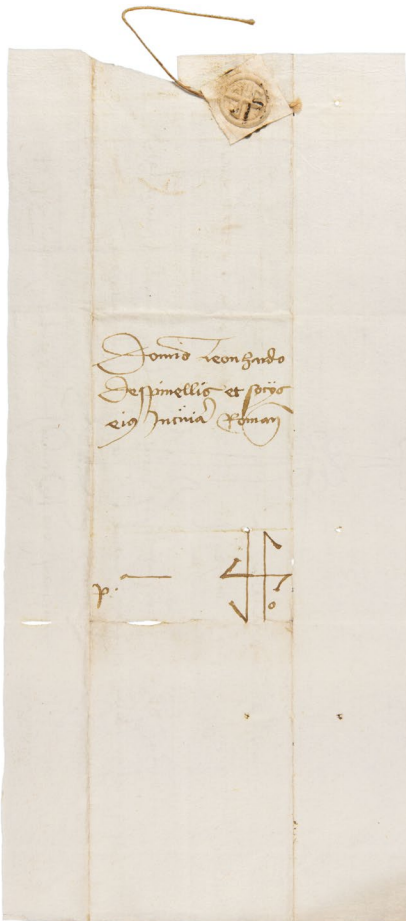 Domino Leonhardo
Despinellis et socijs
eius In curia Roman
p.